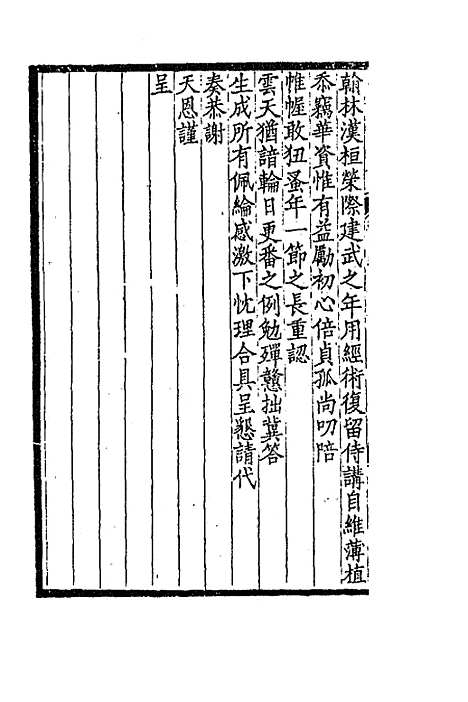 翰林漢桓榮際建武之年用經術復留侍講自維薄植
忝竊華資惟有益勵初心倍貞孤尚叨陪
帷幄敢狃蚤年一節之長重認
雲天猶諳輪日更番之例勉殫戇拙冀答
生成所有佩綸感激下忱理合具呈懇請代
奏恭謝
天恩謹
呈